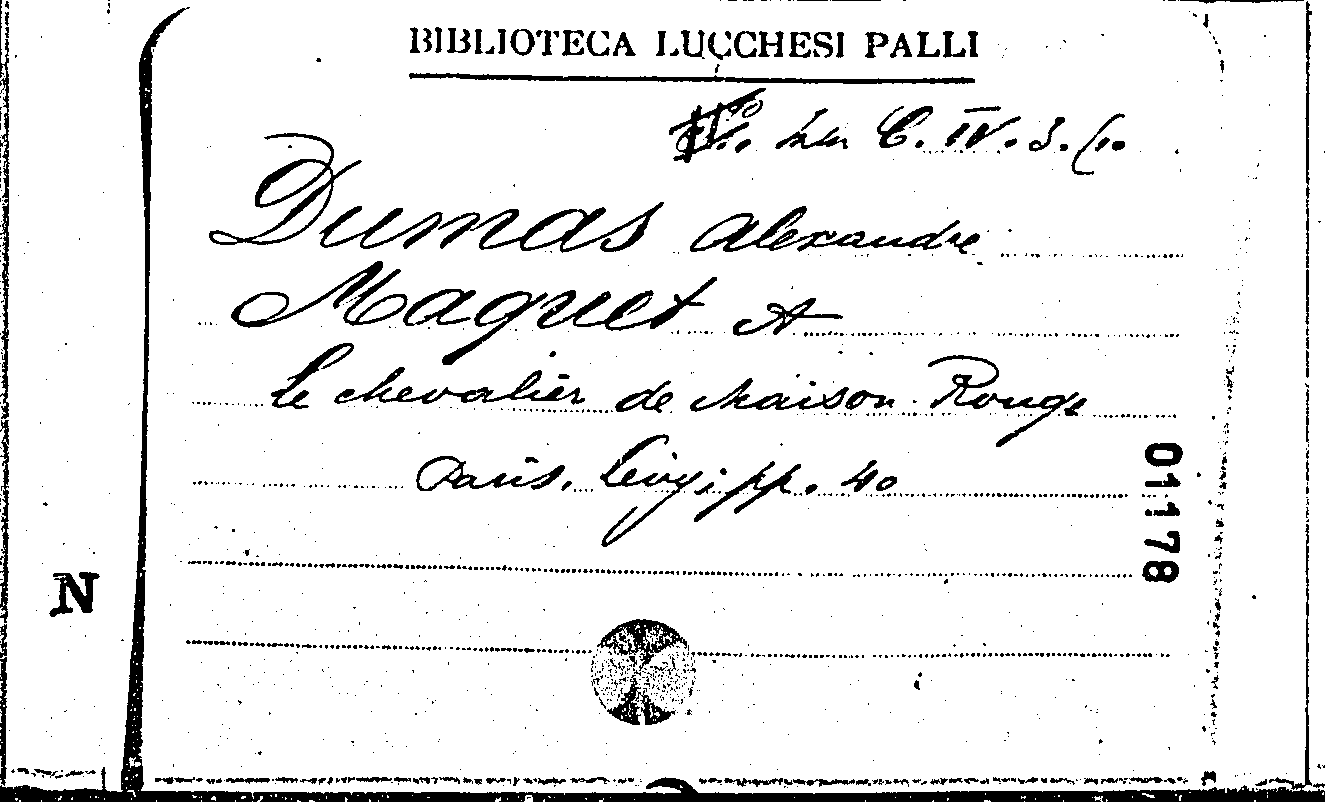 BIBLIOTECA LUCCHESI PALLI
C. IV. 3.
Dumas Alexandre
Maquet A
Le chevalier de Maison Rouge
Paris. Lévy; pp. 40
01178
N